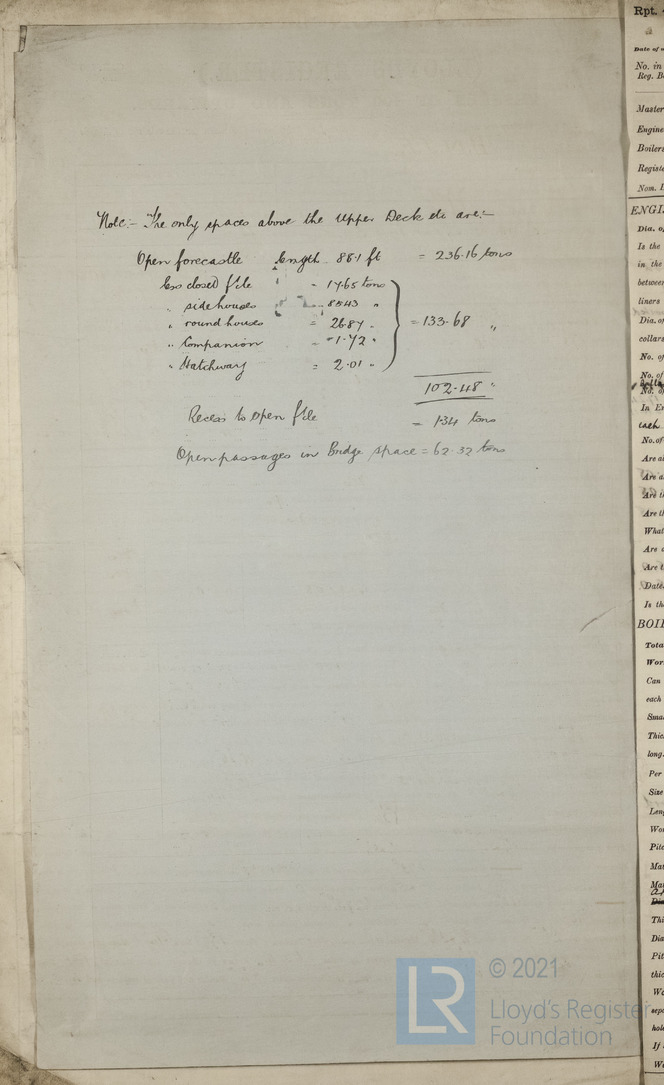 Note:- The only spaces above the Upper Deck etc are:-
Open forecastle length 88.1 ft = 236.16 tons
less closed f'cle = 17.65 tons
" side houses = 85.43 "
" round houses = 26.87 "
" Companion = 1.72 "
" Hatchway = 2.01 "
= 133.68 "
102.48 "
Recess to Open f'cle = 134 tons
Open passages in Bridge space = 62.32 tons
Rpt.
Date of
No. in
Reg. B
Master
Engine
Boilers
Registe
Nom. H
ENGI
Dia. of
Is the
in the
between
liners
Dia. of
collars
No. of
No. of
No. of
In En
each
No. of
Are al
Are a
Are th
Are th
What
Are a
Are t
Date
Is th
BOIL
Tota
Wor
Can
each
Sma
Thic
long.
Per
Size
Len
Wo
Pit
Ma
Ma
Thi
Dia
Pit
thic
Wo
sepa
hol
If
W
LR
© 2021
Lloyd's Register
Foundation